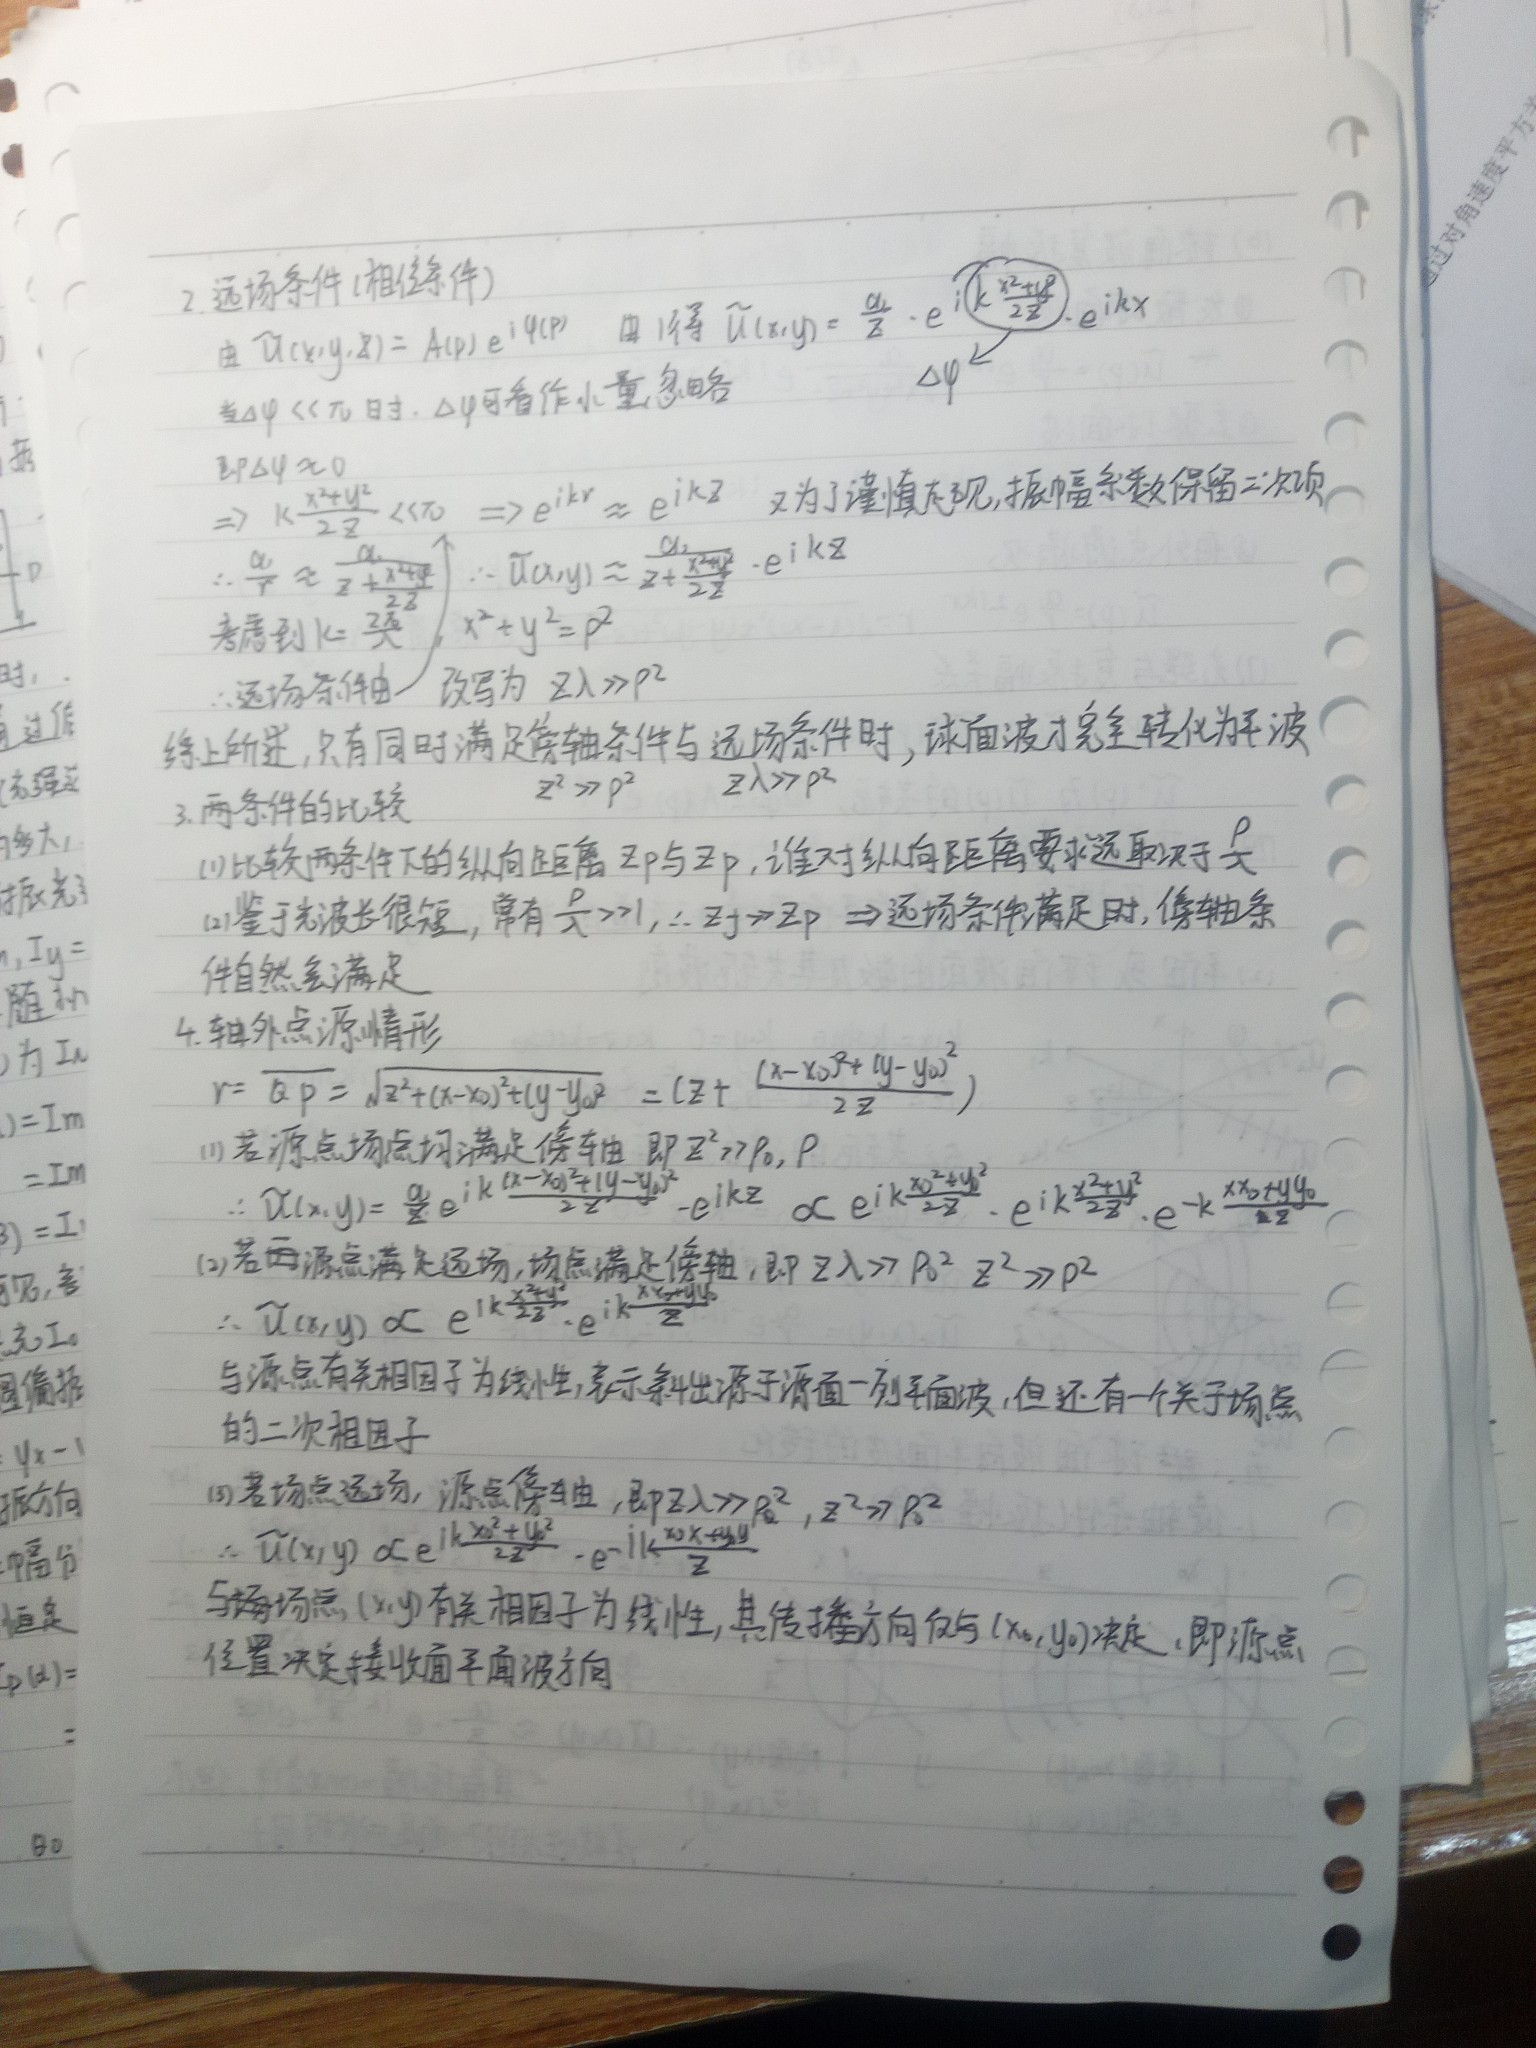 2. 远场条件(相位条件)
由 Ũ(x,y,z)= A(p) e^{iφ(p)} 由1得 Ũ(x,y)= a₁/z · e^{ik (x²+y²)/2z} · e^{ikx}
Δφ
当Δφ<<π时. Δφ可看作小量忽略
即Δφ≈0
⇒ k (x²+y²)/2z <<π ⇒ e^{ikr} ≈ e^{ikz} 又为了谨慎起见,振幅系数保留二次项
∴ a₁/r ≈ a₁/(z+(x²+y²)/2z) ∴ Ũ(x,y)≈ a₁/(z+(x²+y²)/2z) · e^{ikz}
考虑到k= 2π/λ, x²+y²=ρ²
∴远场条件由 改写为 zλ≫ρ²
综上所述,只有同时满足傍轴条件与远场条件时,球面波才完全转化为平波
z²≫ρ² zλ≫ρ²
3. 两条件的比较
(1)比较两条件下的纵向距离 zp与zp,谁对纵向距离要求远取决于 ρ/λ
(2)鉴于光波长很短,常有 ρ/λ >>1,∴ zf≫zp ⇒远场条件满足时,傍轴条
件自然会满足
4. 轴外点源情形
r= Q̅P̅ = √(z²+(x-x₀)²+(y-y₀)²) = (z+ ((x-x₀)²+(y-y₀)²)/2z )
(1) 若源点场点均满足傍轴 即 z²≫ρ₀, ρ
∴ Ũ(x,y)= a₁/z e^{ik ((x-x₀)²+(y-y₀)²)/2z} · e^{ikz} ∝ e^{ik (x₀²+y₀²)/2z} · e^{ik (x²+y²)/2z} · e^{-k (xx₀+yy₀)/z}
(2) 若源点满足远场,场点满足傍轴,即 zλ≫ρ₀² z²≫ρ²
∴ Ũ(x,y) ∝ e^{ik (x²+y²)/2z} · e^{ik (xx₀+yy₀)/z}
与源点有关相因子为线性,表示斜出源于源面一列平面波,但还有一个关于场点
的二次相因子
(3) 若场点远场,源点傍轴,即zλ≫ρ², z²≫ρ₀²
∴ Ũ(x,y) ∝ e^{ik (x₀²+y₀²)/2z} · e^{-ik (x₀x+y₀y)/z}
与场点(x,y)有关相因子为线性,其传播方向仅与(x₀,y₀)决定,即源点
位置决定接收面平面波方向
通过对角速度平方